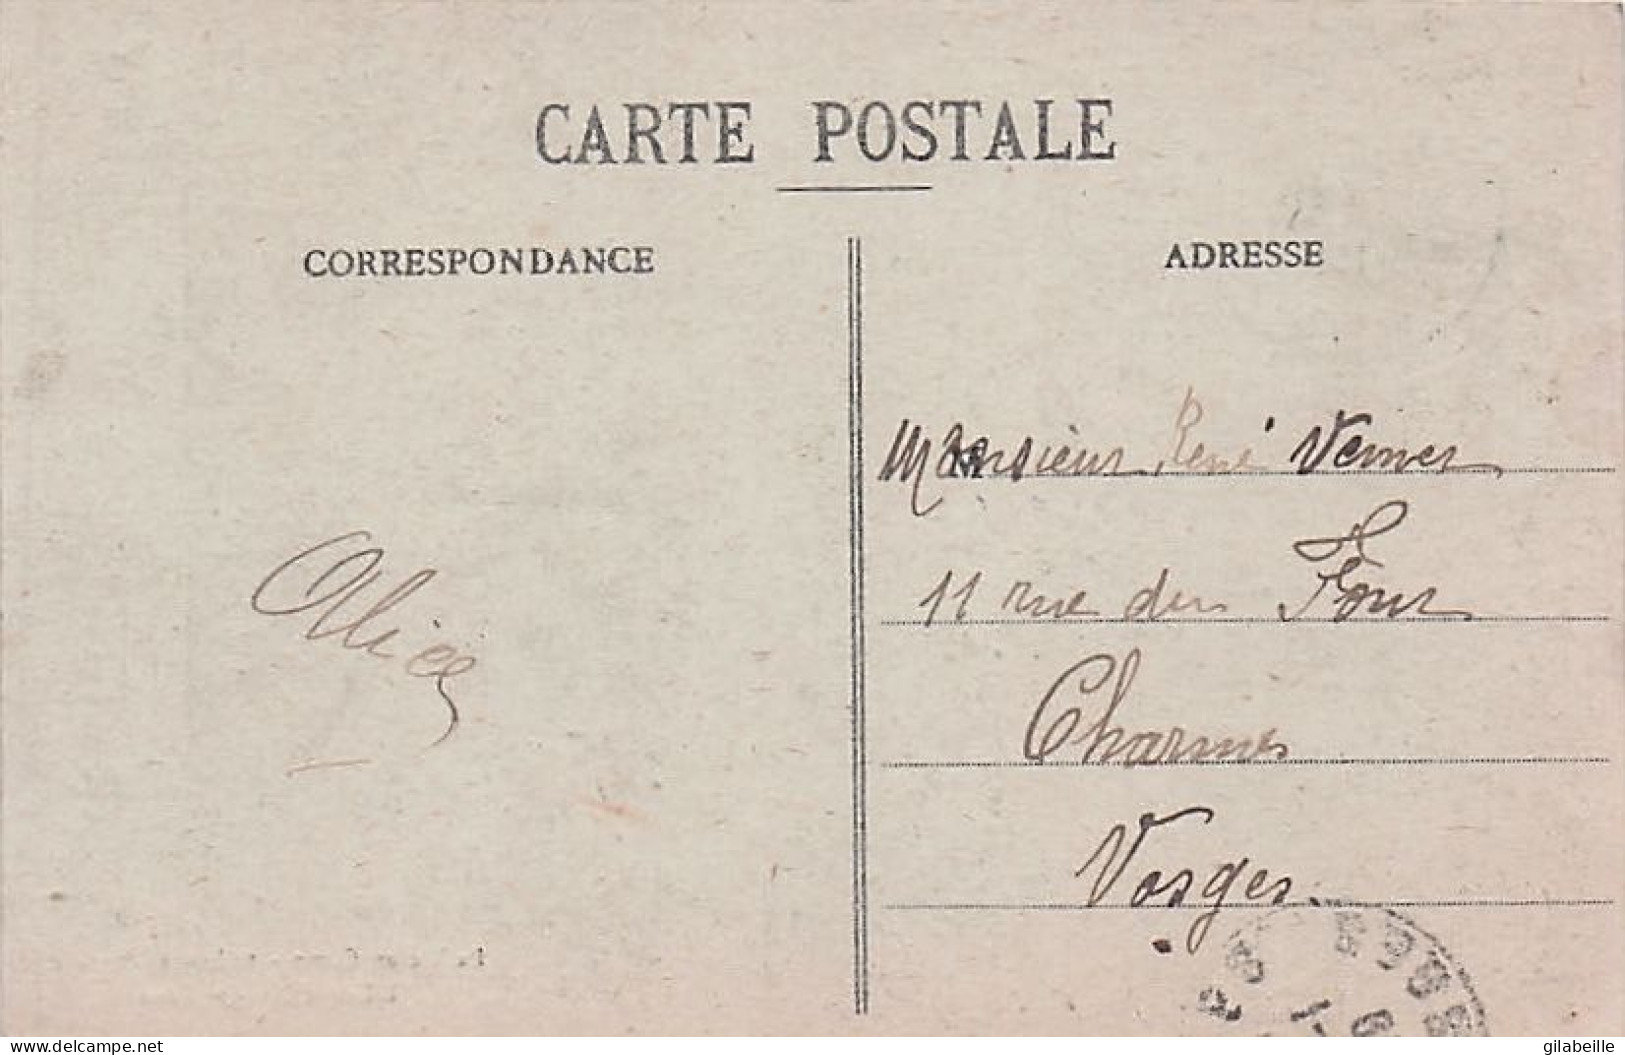 CARTE POSTALE
CORRESPONDANCE
ADRESSE
Monsieur René Vernier
11 rue du Four
Charmes
Vosges
Alice
www.delcampe.net
gilabeille